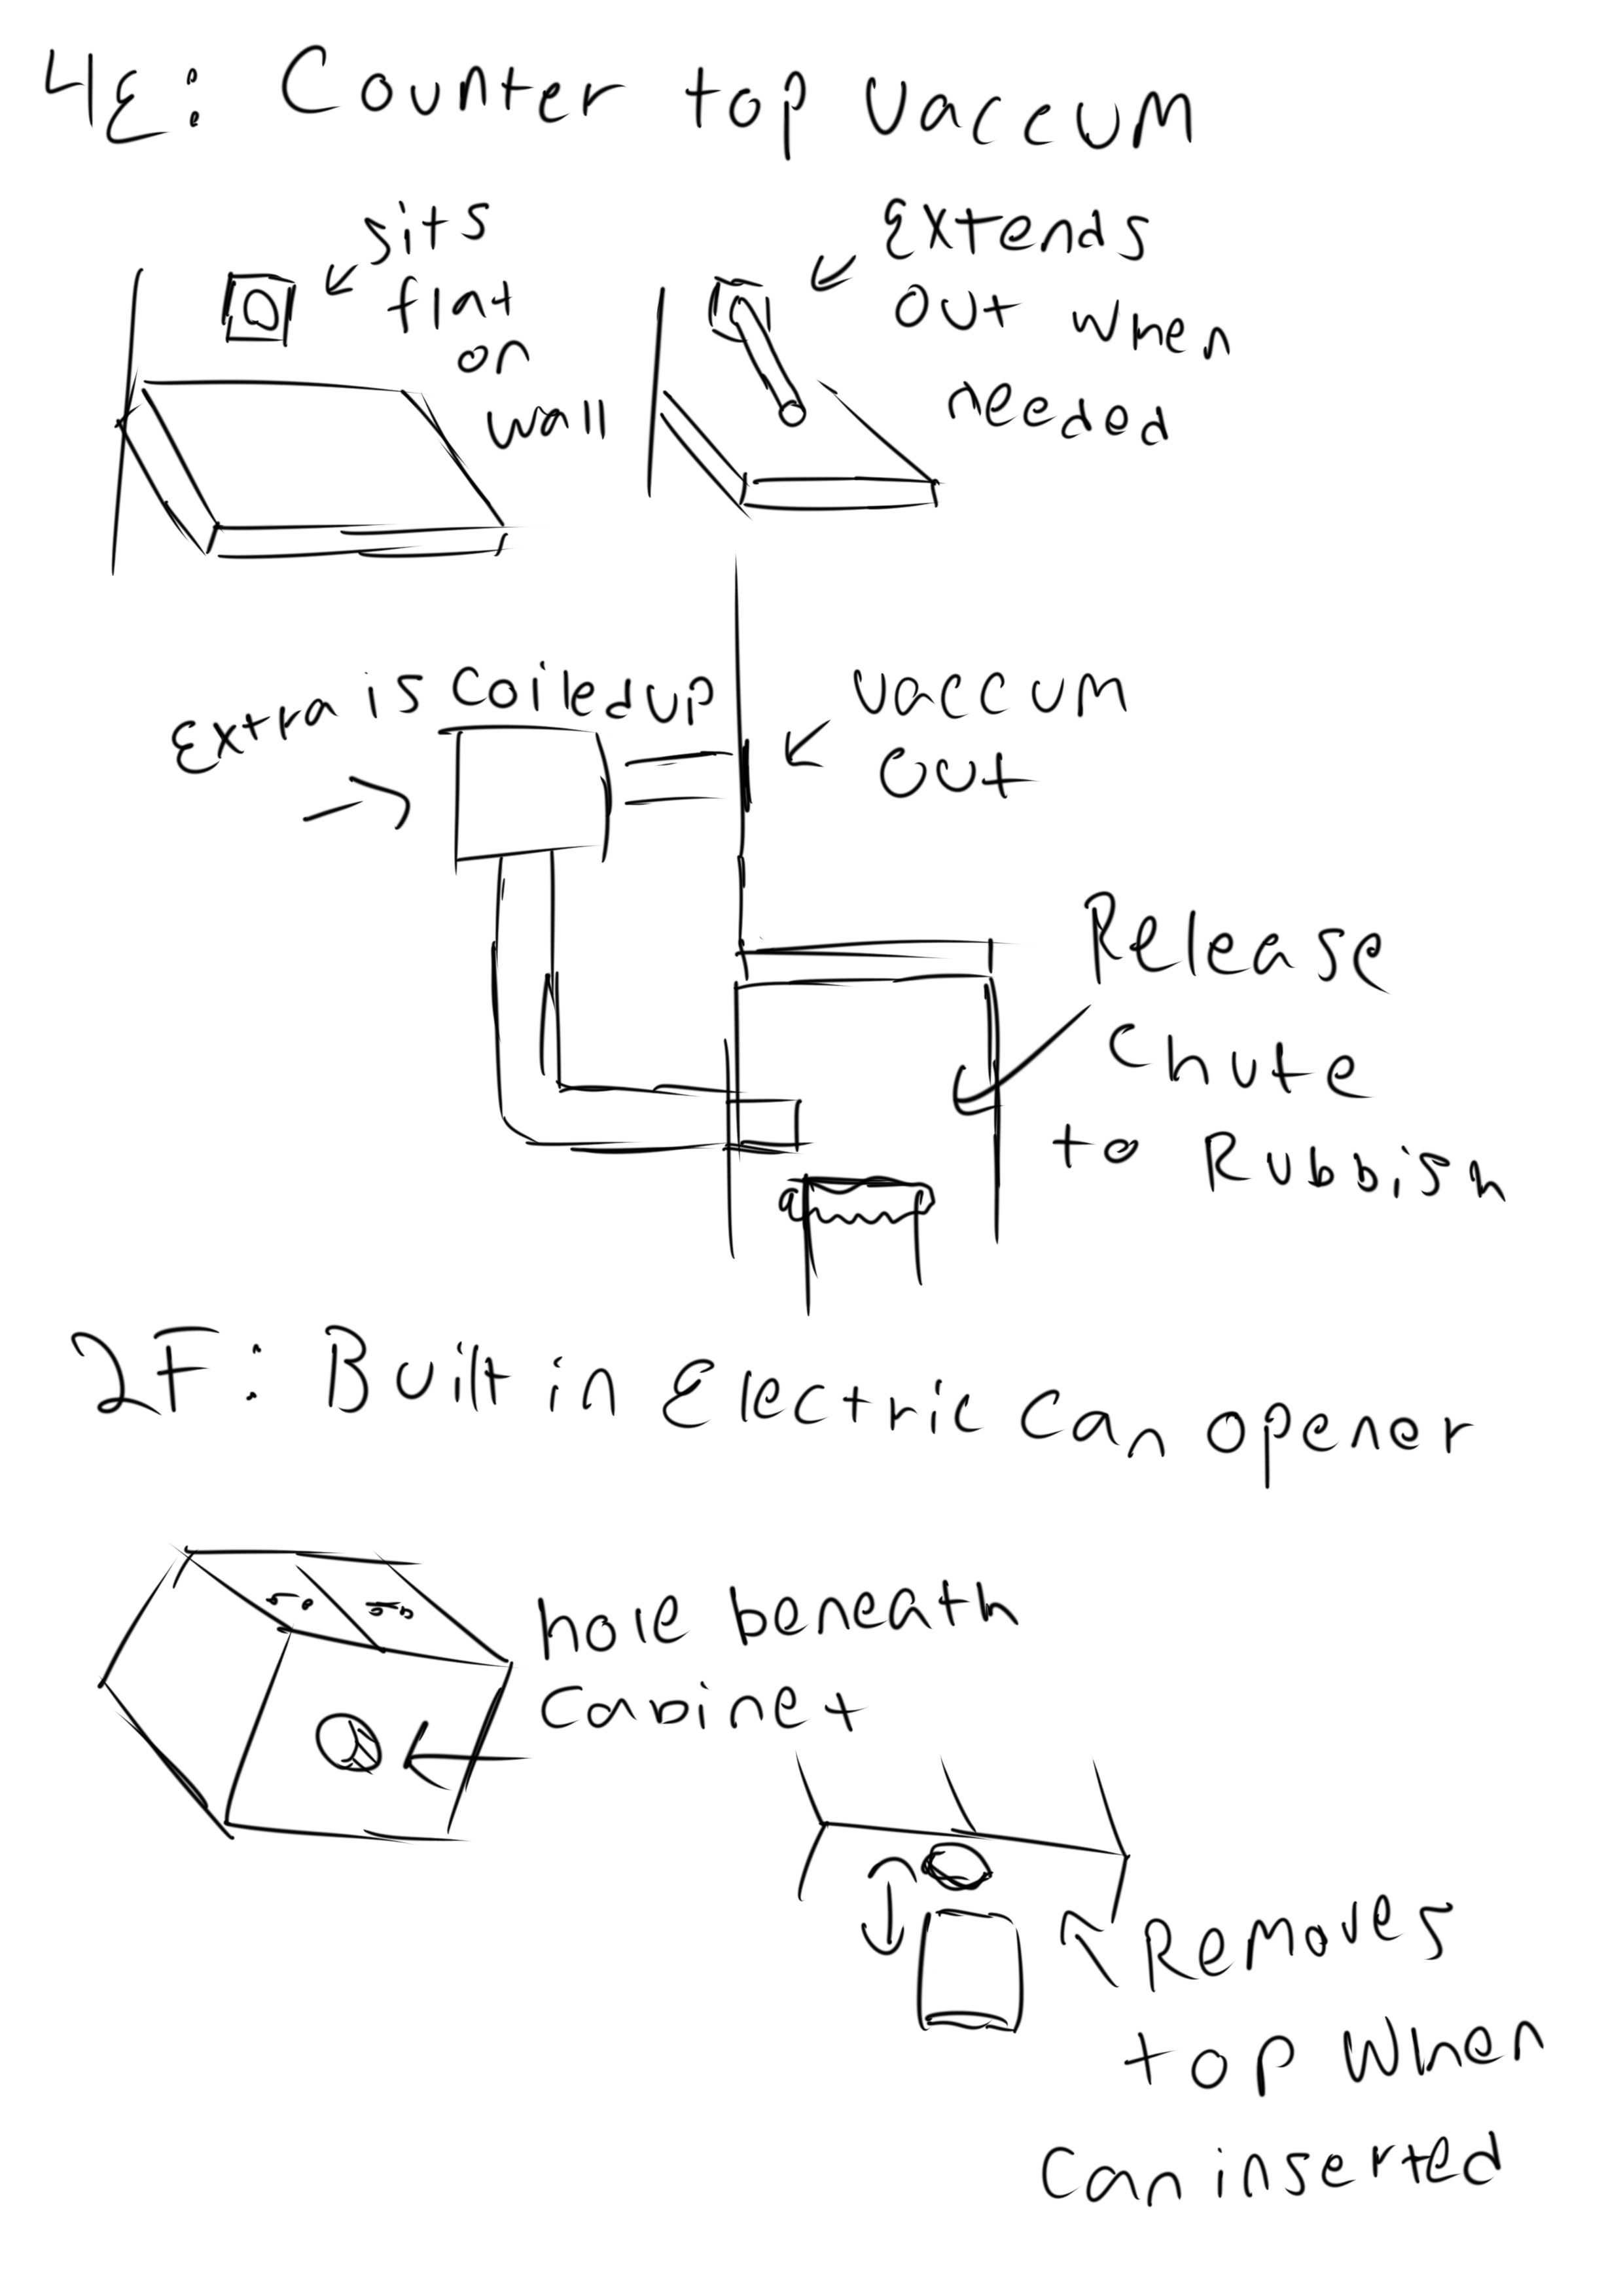 4E: Counter top vaccum
sits
flat
on
wall
Extends
out when
needed
Extra is coiled up
vaccum
out
Release
chute
to Rubbish
2F: Built in Electric can opener
hole beneath
cabinet
Removes
top when
can inserted